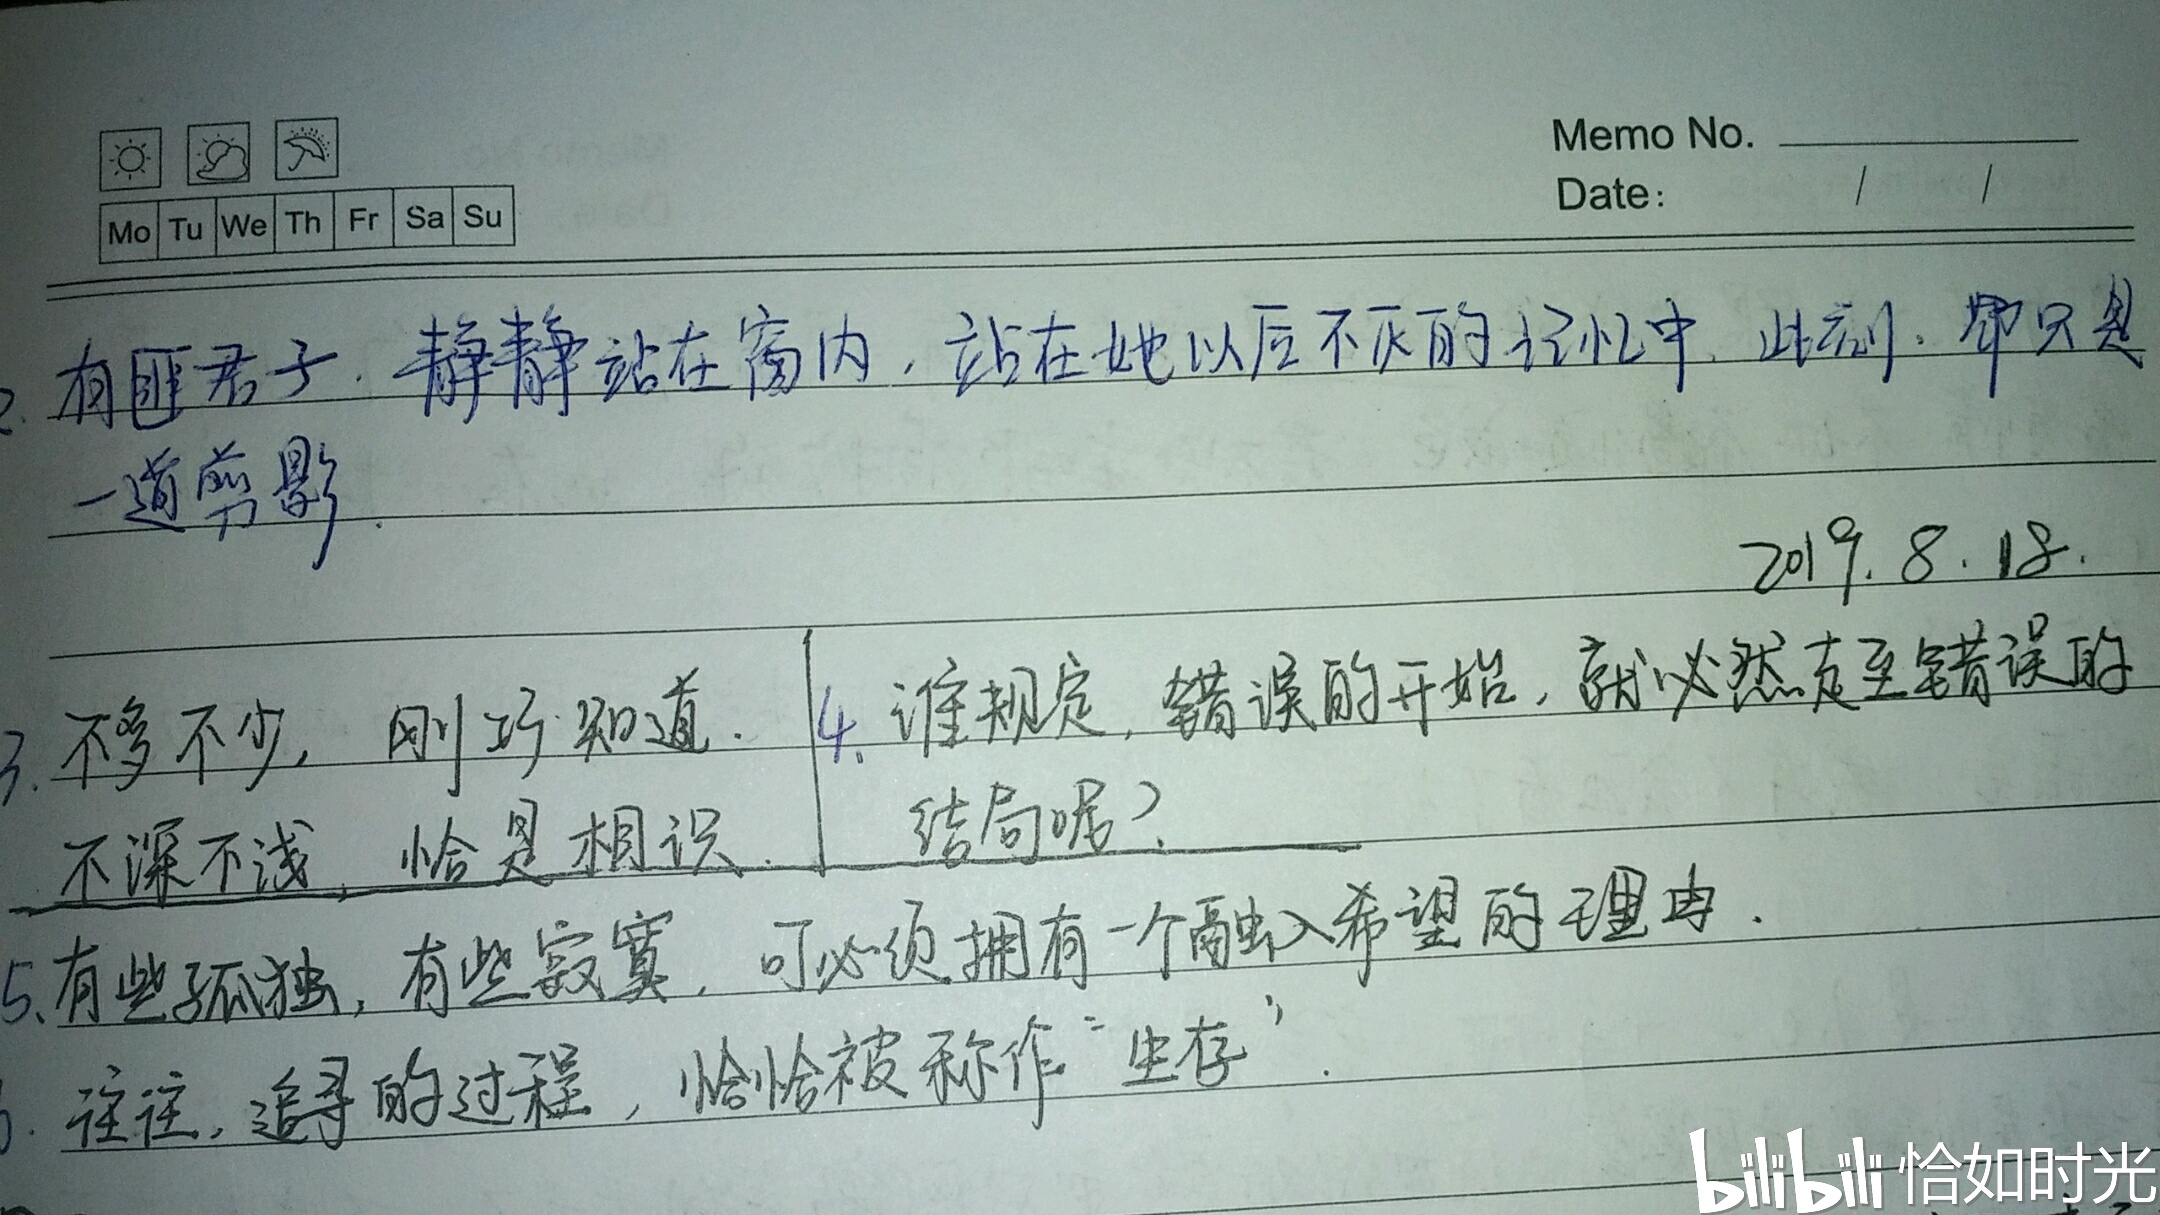 Memo No.
Date: / /
Mo Tu We Th Fr Sa Su
2. 有匪君子. 静静站在窗内, 站在她以后不灰的记忆中. 此刻. 却只是
一道剪影.
2019. 8. 18.
3. 不多不少, 刚巧知道.
不深不浅, 恰是相识.
4. 谁规定, 错误的开始, 就必然走至错误的
结局呢?
5. 有些孤独, 有些寂寞, 可必须拥有一个融入希望的理由.
6. 往往, 追寻的过程, 恰恰被称作“生存”.
bilibili 恰如时光